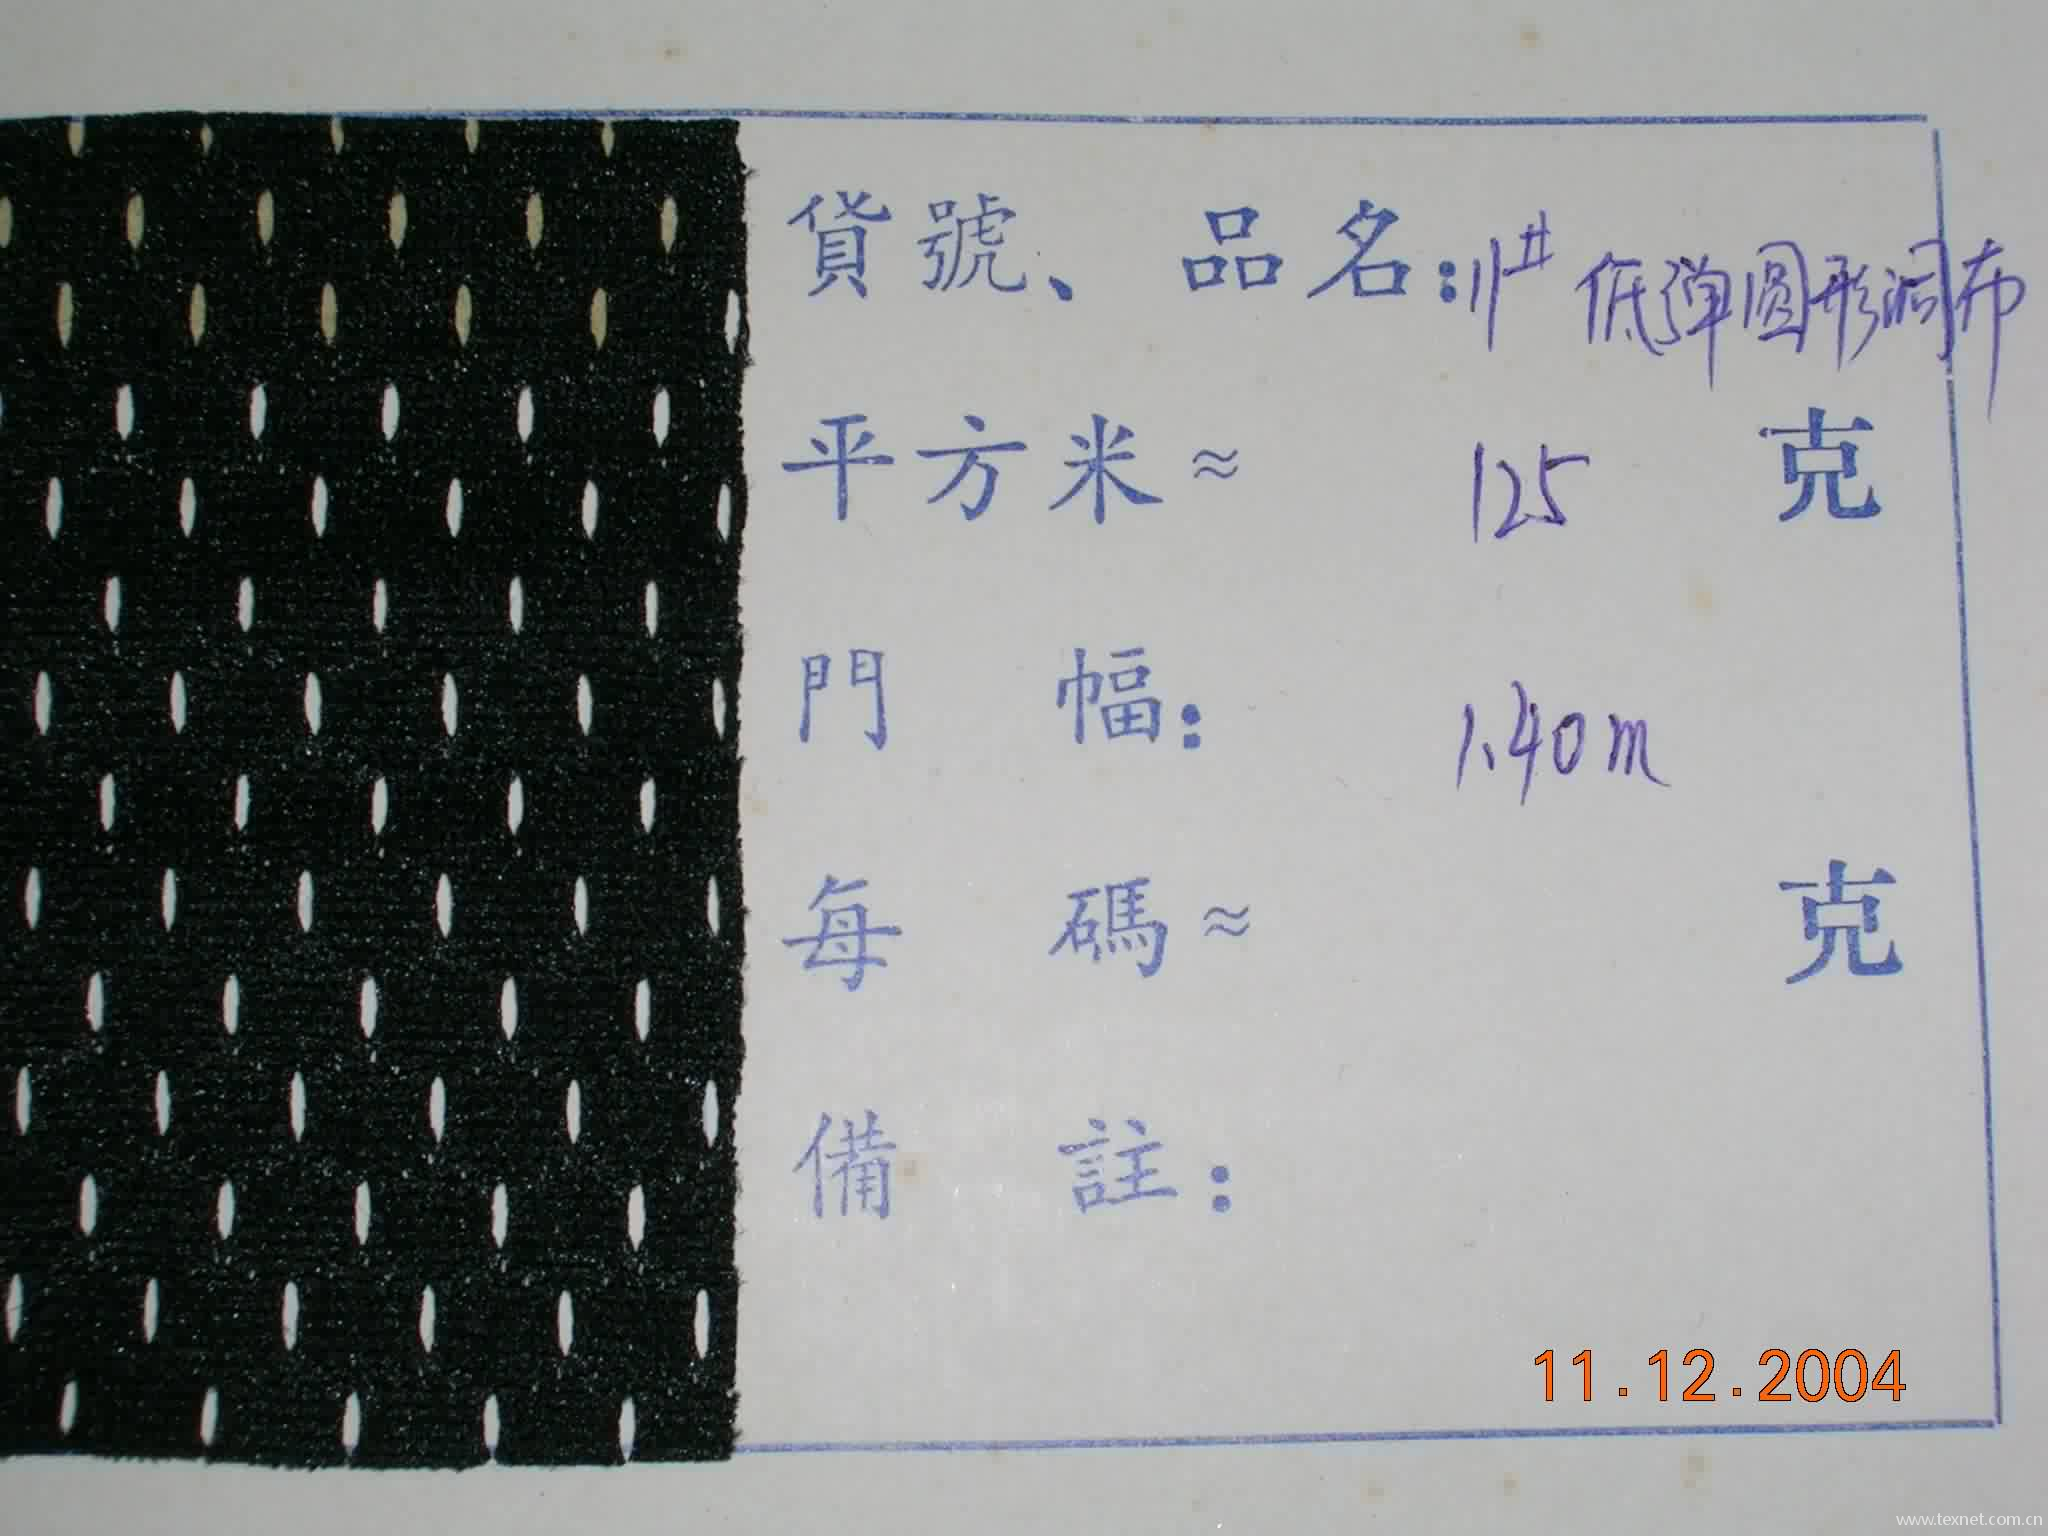 貨號、品名:11# 低弹圆形洞布
平方米≈ 125 克
門幅: 1.40m
每碼≈ 克
備註:
11.12.2004
www.texnet.com.cn